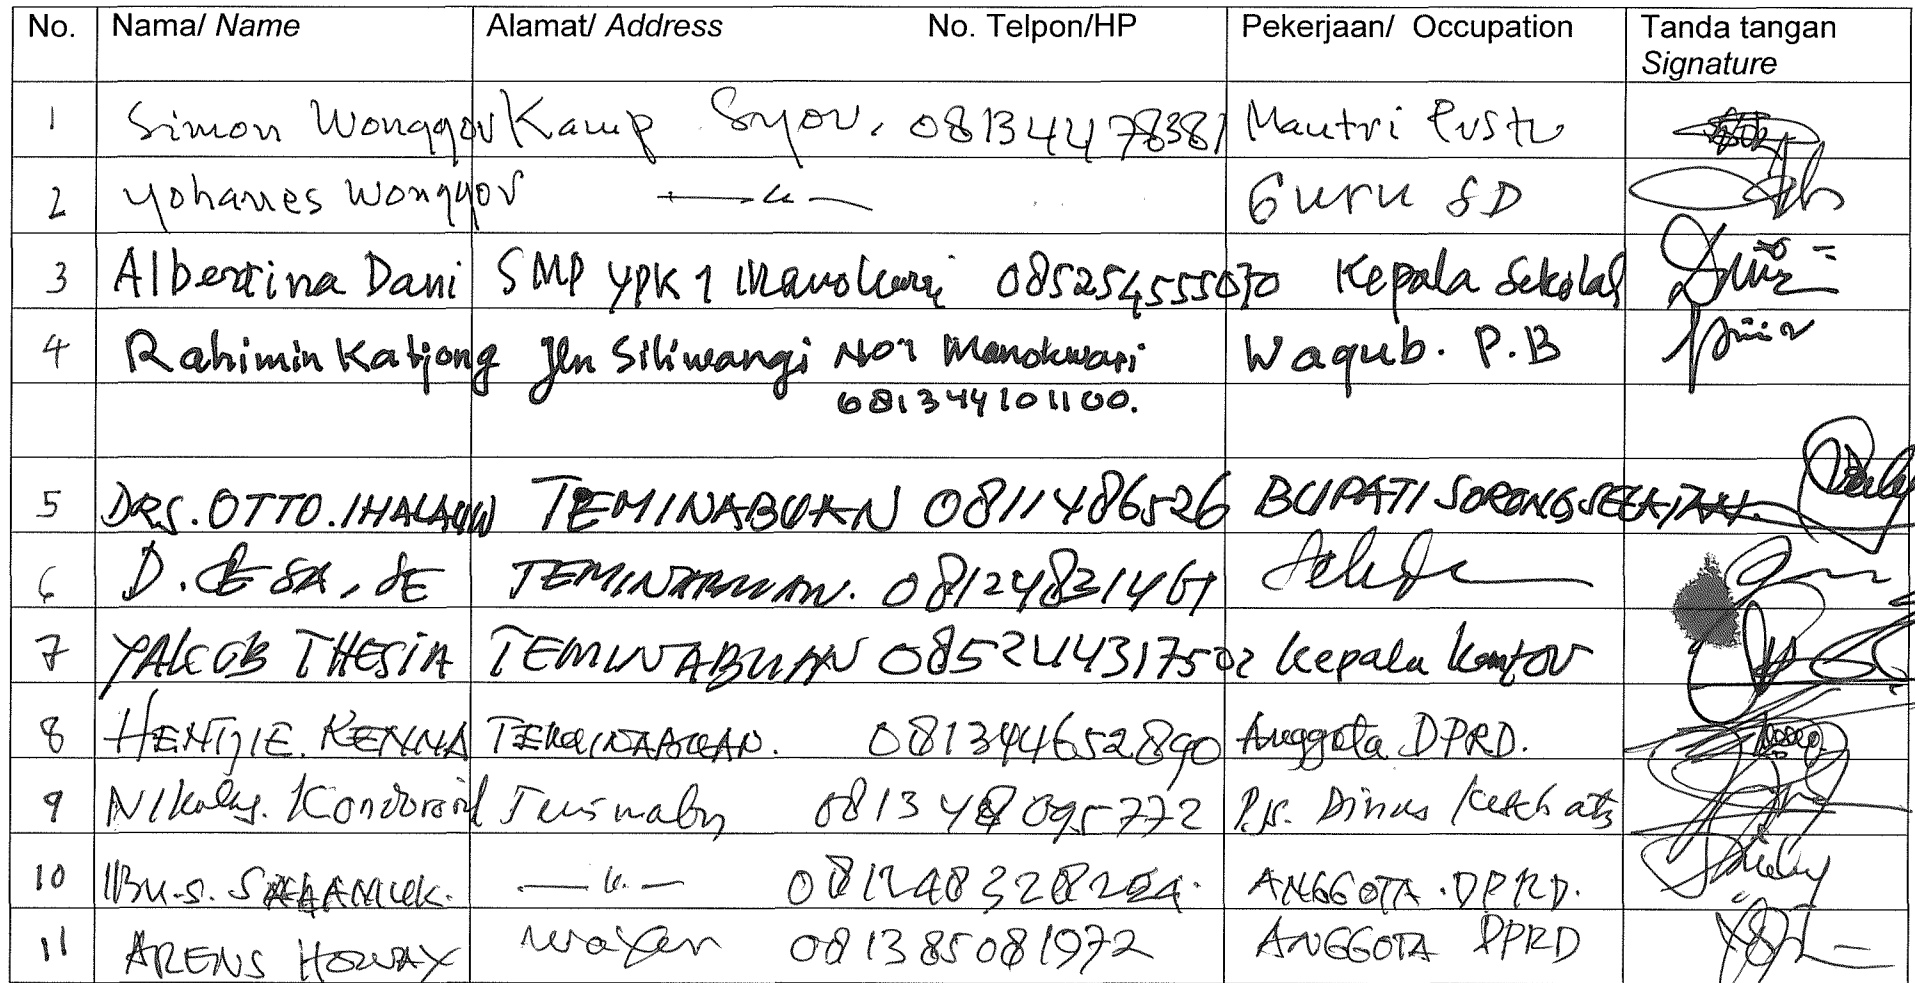 No. Nama/ Name Alamat/ Address No. Telpon/HP Pekerjaan/ Occupation Tanda tangan
Signature
1 Simon Wonggor Kamp Syou. 081344178381 Mantri Pustu
2 Yohanes Wonggor Guru SD
3 Albertina Dani SMP YPK 1 Manokwari 085254555070 Kepala Sekolah
4 Rahimin Katjong Jln Siliwangi No 1 Manokwari Wagub. P.B
081344101100.
5 DRS. OTTO. IHALAUW TEMINABUAN 0811486526 BUPATI SORONG SELATAN.
6 D. SA, SE TEMINABUAN. 081248321461
7 YAKOB THESIA TEMINABUAN 085244317502 Kepala Kantor
8 HENTJIE. KENNA TEMINABUAN. 081344652890 Anggota DPRD.
9 Nikolas. Teminabu 081348095772 Dinas
10 Ibu. S. Anggota. DPRD.
11 ARENS HOWAY 081385081972 ANGGOTA DPRD